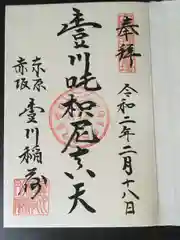 奉拝
令和二年二月十八日
豊川吒枳尼真天
東京
赤坂
豊川稲荷